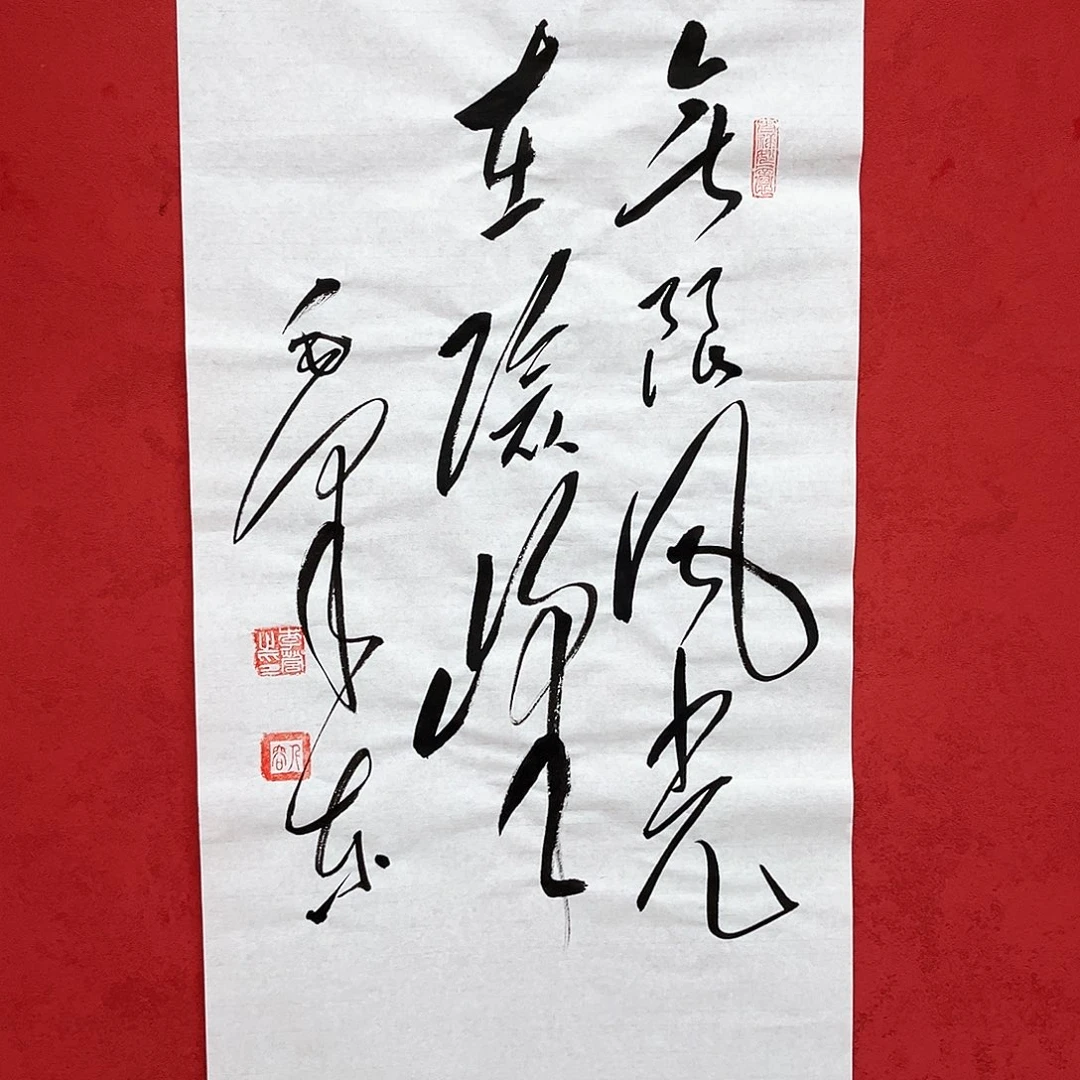 无限风光
在險峰
毛泽东